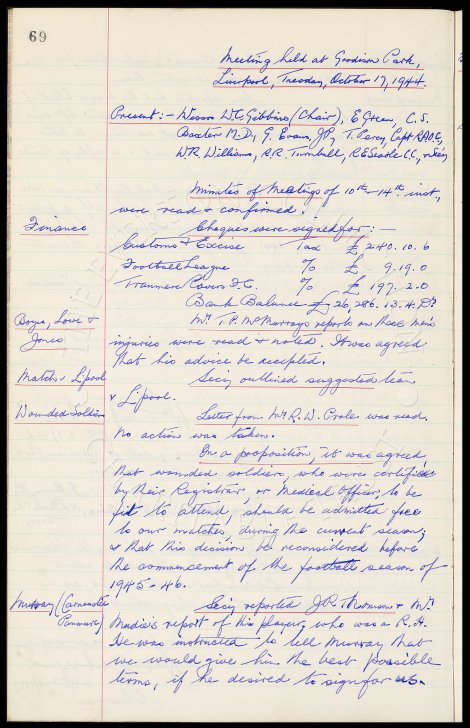 69
Meeting held at Goodison Park,
Liverpool, Tuesday, October 17, 1944.
Present:- Messrs W.C. Gibbins (Chair), E. Green, C.S.
Baxter M.D., G. Evans, J.P., T. Percy, Capt. R.A.O.C.,
W.R. Williams, R.R. Turnbull, R.E. Searle C.C., & Secy.
Minutes of Meetings of 10th & 14th inst,
were read & confirmed.
Finance
Cheques were signed for: —
Customs & Excise Tax £ 240. 10. 6
Football League % £ 9. 19. 0
Tranmere Rovers F.C. % £ 197. 2. 0
Bank Balance £26,286. 13. 4. Dr
Boyes, Lowe &
Jones
Mr. T.P. McMurrays reports on these men's
injuries were read & noted. It was agreed
that his advice be accepted.
Match v L'pool
Secy outlined suggested team
v L'pool.
Wounded Soldiers
Letter from Mr R.W. was read.
No action was taken.
On a proposition, it was agreed
that wounded soldiers, who were certified
by their Registrar, or Medical Officer, to be
fit to attend, should be admitted free
to our matches, during the current season;
& that this decision be reconsidered before
the commencement of the football season of
1945-46.
Murray (Carnoustie
Panmure)
Secy reported J.R. Thomson & Mr
Mudie's report of this player, who was a R.H.
He was instructed to tell Murray that
we would give him the best possible
terms, if he desired to sign for us.